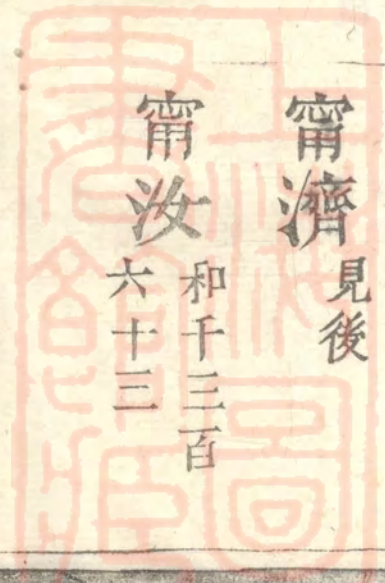 甯濟見後
甯汝和千三百
六十三